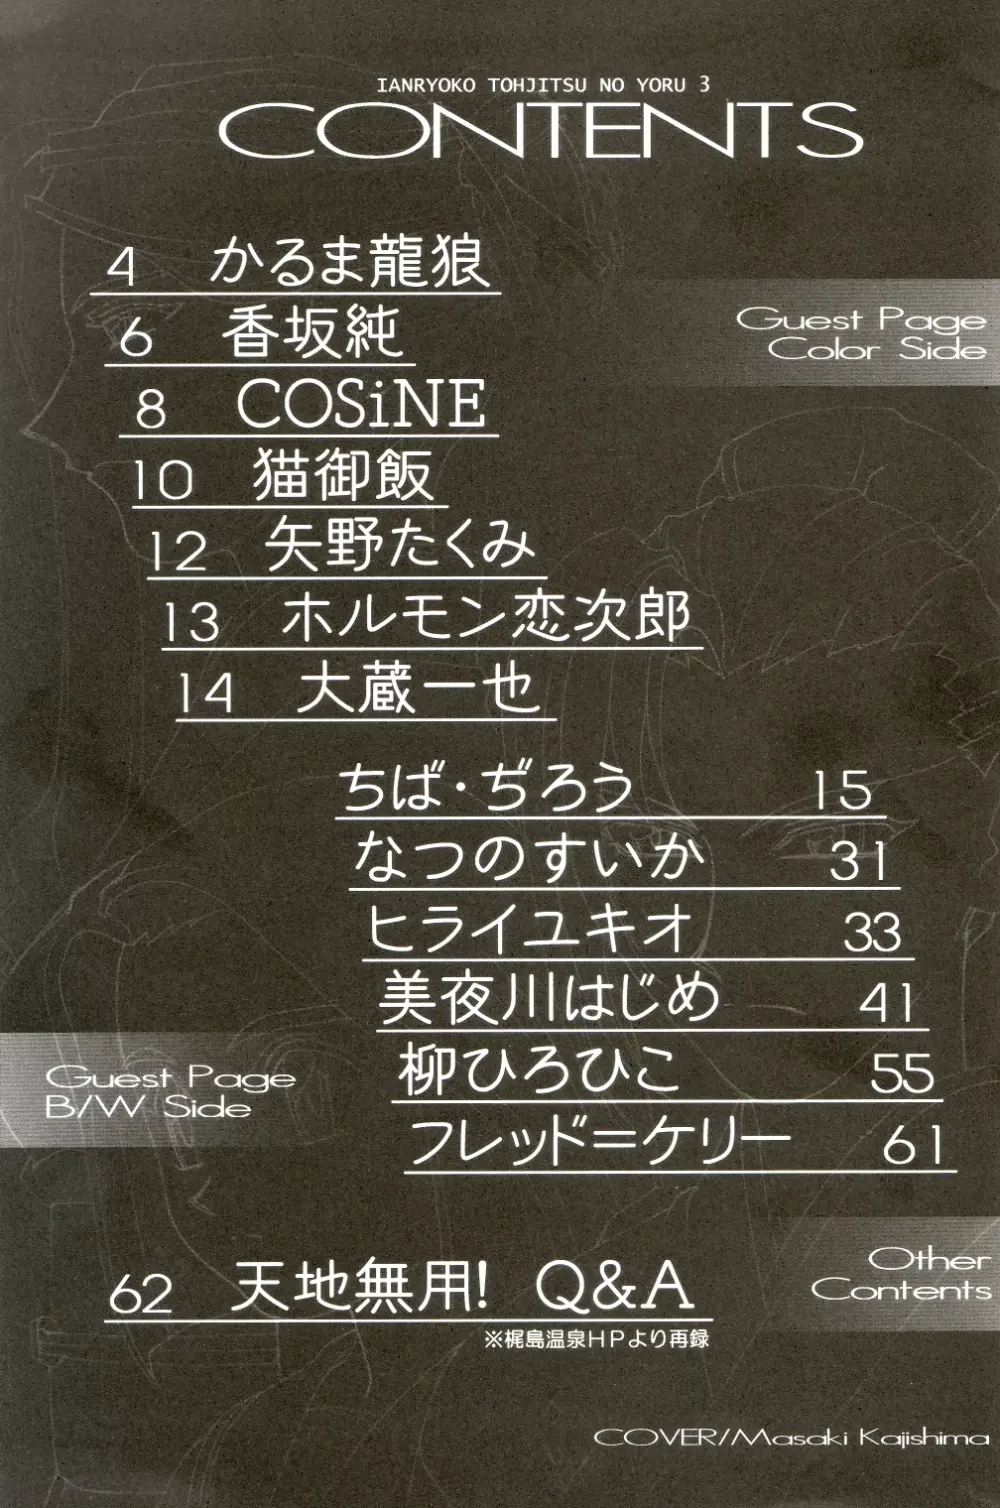 IANRYOKO TOHJITSU NO YORU 3
CONTENTS
4 かるま龍狼
Guest Page
Color Side
6 香坂純
8 COSiNE
10 猫御飯
12 矢野たくみ
13 ホルモン恋次郎
14 大蔵一也
ちば・ぢろう 15
なつのすいか 31
ヒライユキオ 33
美夜川はじめ 41
Guest Page
B/W Side
柳ひろひこ 55
フレッド＝ケリー 61
Other
Contents
62 天地無用! Q&A
※梶島温泉HPより再録
COVER/Masaki Kajishima